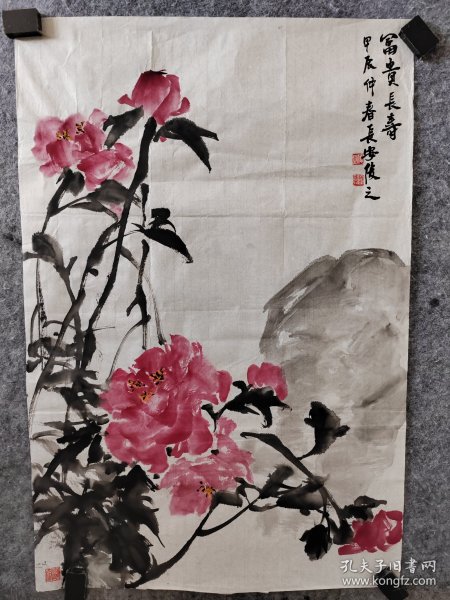 富貴長壽
甲辰仲春長安俊之
孔夫子旧书网
www.kongfz.com